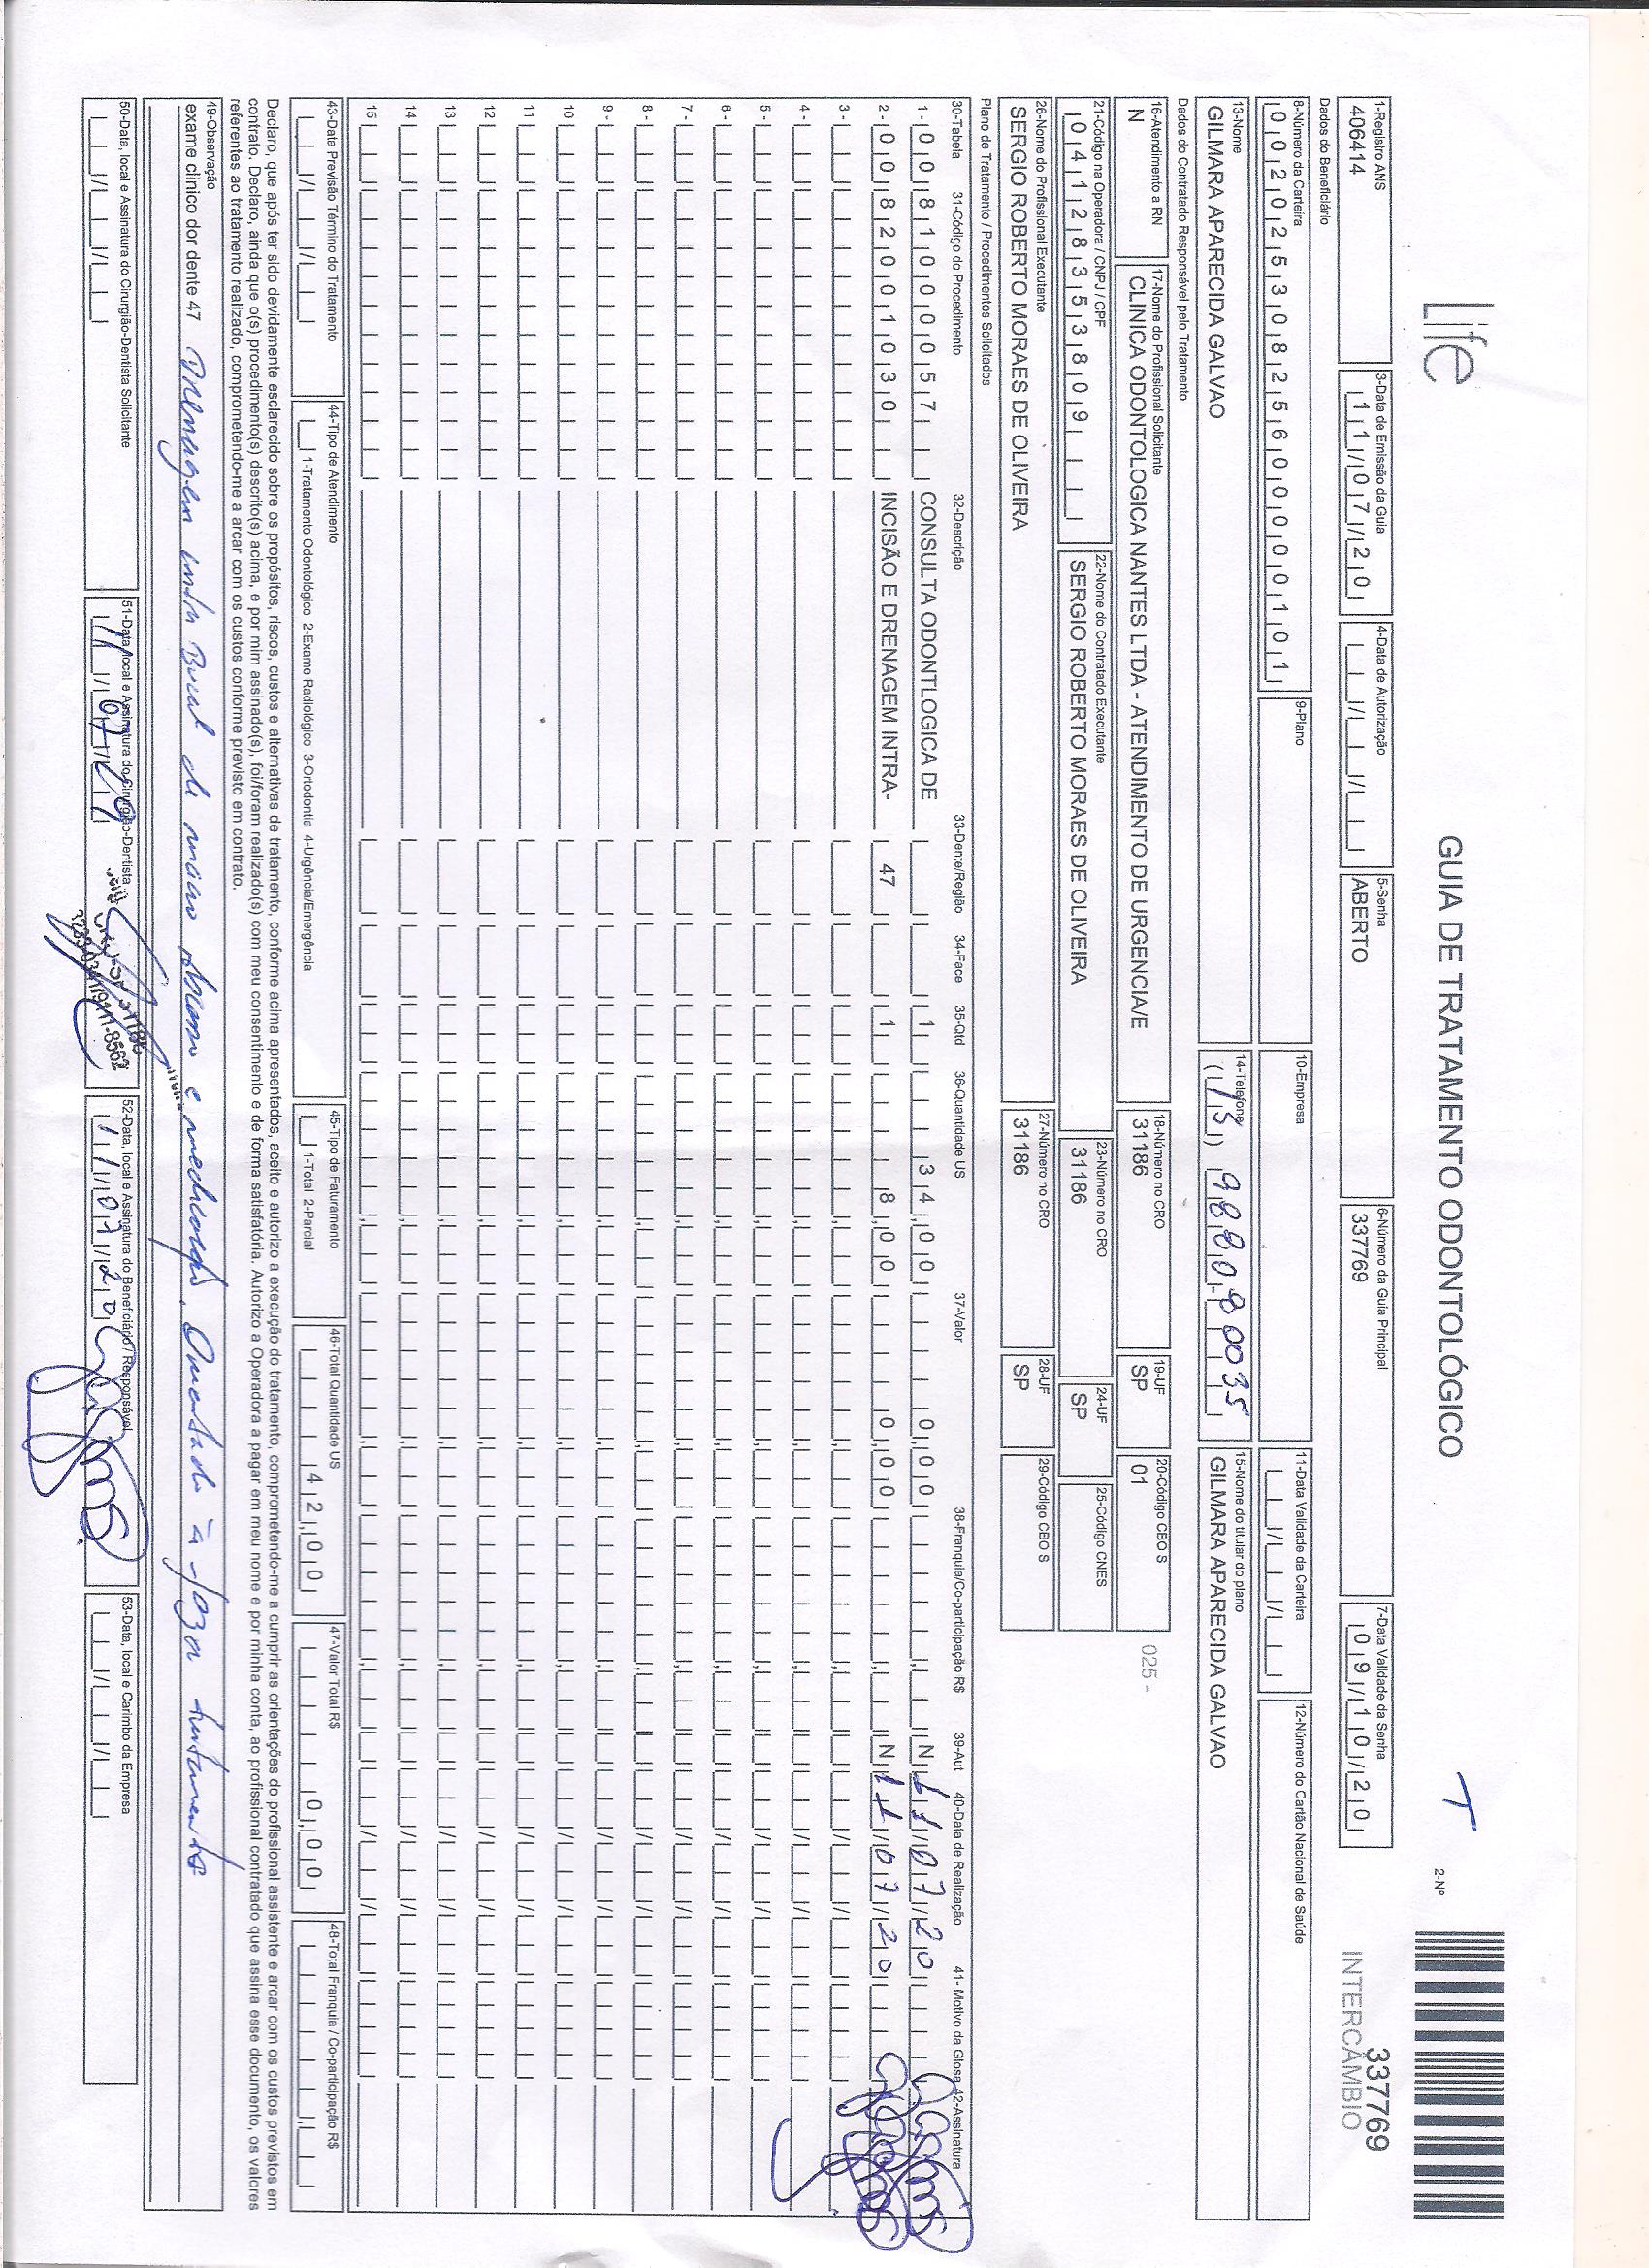 Life
GUIA DE TRATAMENTO ODONTOLÓGICO
T
2-Nº
337769
INTERCÂMBIO
1-Registro ANS
406414
3-Data de Emissão da Guia
11/07/20
4-Data de Autorização
5-Senha
ABERTO
6-Número da Guia Principal
337769
7-Data Validade da Senha
09/10/20
Dados do Beneficiário
8-Número da Carteira
00202530825600000101
9-Plano
10-Empresa
11-Data Validade da Carteira
12-Número do Cartão Nacional de Saúde
13-Nome
GILMARA APARECIDA GALVAO
14-Telefone
15-Nome do titular do plano
GILMARA APARECIDA GALVAO
Dados do Contratado Responsável pelo Tratamento
16-Atendimento a RN
N
17-Nome do Profissional Solicitante
CLINICA ODONTOLOGICA NANTES LTDA - ATENDIMENTO DE URGENCIA/E
18-Número no CRO
31186
19-UF
SP
20-Código CBO S
01
025 -
21-Código na Operadora / CNPJ / CPF
04128353809
22-Nome do Contratado Executante
SERGIO ROBERTO MORAES DE OLIVEIRA
23-Número no CRO
31186
24-UF
SP
25-Código CNES
26-Nome do Profissional Executante
SERGIO ROBERTO MORAES DE OLIVEIRA
27-Número no CRO
31186
28-UF
SP
29-Código CBO S
Plano de Tratamento / Procedimentos Solicitados
30-Tabela 31-Código do Procedimento 32-Descrição 33-Dente/Região 34-Face 35-Qtd 36-Quantidade US 37-Valor 38-Franquia/Co-participação R$ 39-Aut 40-Data de Realização 41- Motivo da Glosa 42-Assinatura
1- 00 81000057 CONSULTA ODONTLOGICA DE 1 34,00 0,00 N 11/07/20
2- 00 82001030 INCISÃO E DRENAGEM INTRA- 47 1 8,00 0,00 N 11/07/20
3-
4-
5-
6-
7-
8-
9-
10
11
12
13
14
15
43-Data Previsão Término do Tratamento
44-Tipo de Atendimento
1-Tratamento Odontológico 2-Exame Radiológico 3-Ortodontia 4-Urgência/Emergência
45-Tipo de Faturamento
1-Total 2-Parcial
46-Total Quantidade US
42,00
47-Valor Total R$
0,00
48-Total Franquia / Co-participação R$
Declaro, que após ter sido devidamente esclarecido sobre os propósitos, riscos, custos e alternativas de tratamento, conforme acima apresentados, aceito e autorizo a execução do tratamento, comprometendo-me a cumprir as orientações do profissional assistente e arcar com os custos previstos em
contrato. Declaro, ainda que o(s) procedimento(s) descrito(s) acima, e por mim assinado(s), foi/foram realizado(s) com meu consentimento e de forma satisfatória. Autorizo a Operadora a pagar em meu nome e por minha conta, ao profissional contratado que assina esse documento, os valores
referentes ao tratamento realizado, comprometendo-me a arcar com os custos conforme previsto em contrato.
49-Observação
exame clinico dor dente 47 Drenagem intra Bucal de e medicação. Orientado a fazer tratamento
50-Data, local e Assinatura do Cirurgião-Dentista Solicitante
51-Data, local e Assinatura do Cirurgião-Dentista
11/07/20
52-Data, local e Assinatura do Beneficiário / Responsável
11/07/20
53-Data, local e Carimbo da Empresa